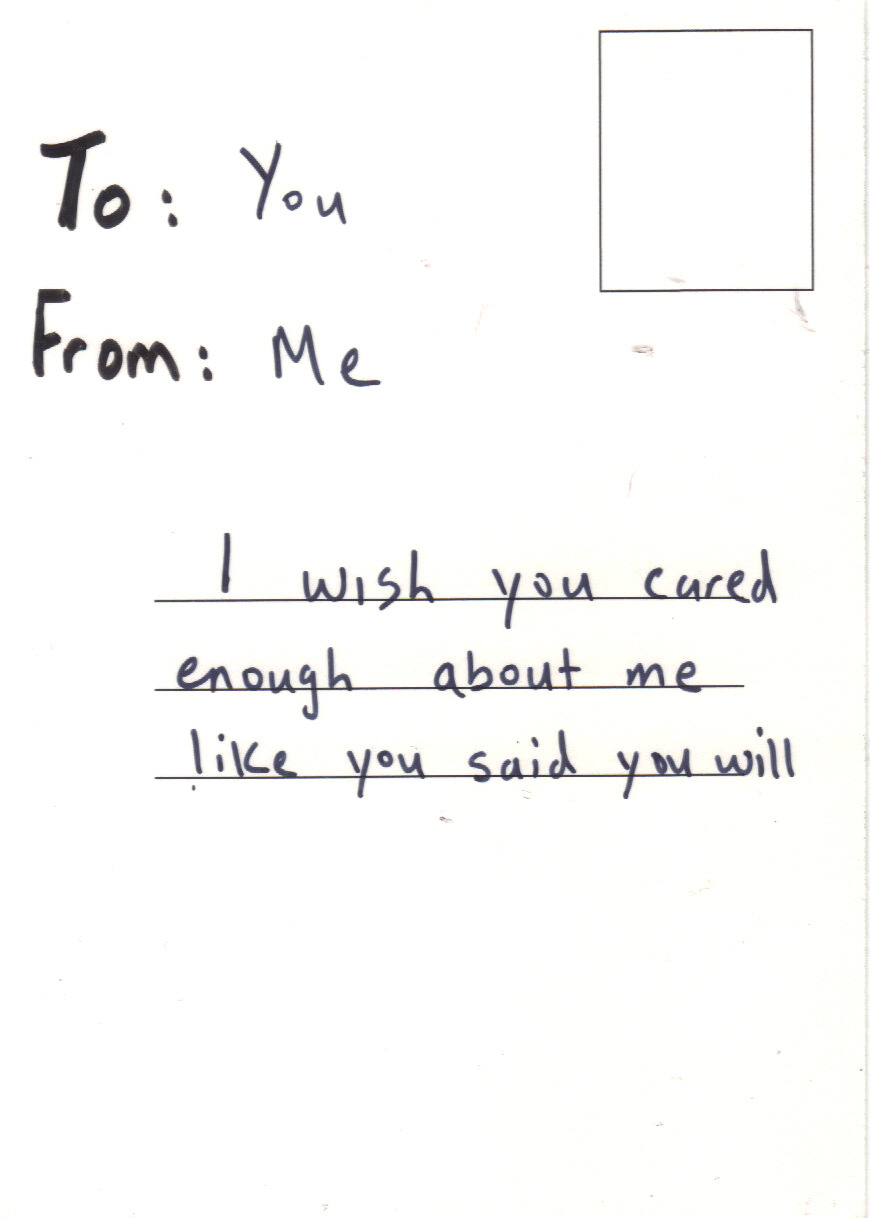 To: You
From: Me
I wish you cared
enough about me
like you said you will